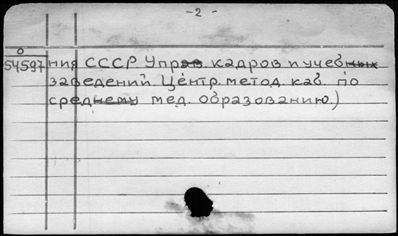 - 2 -
54597 ния СССР. Упр. кадров и учебных
заведений. Центр. метод. каб. по
среднему мед. образованию.)